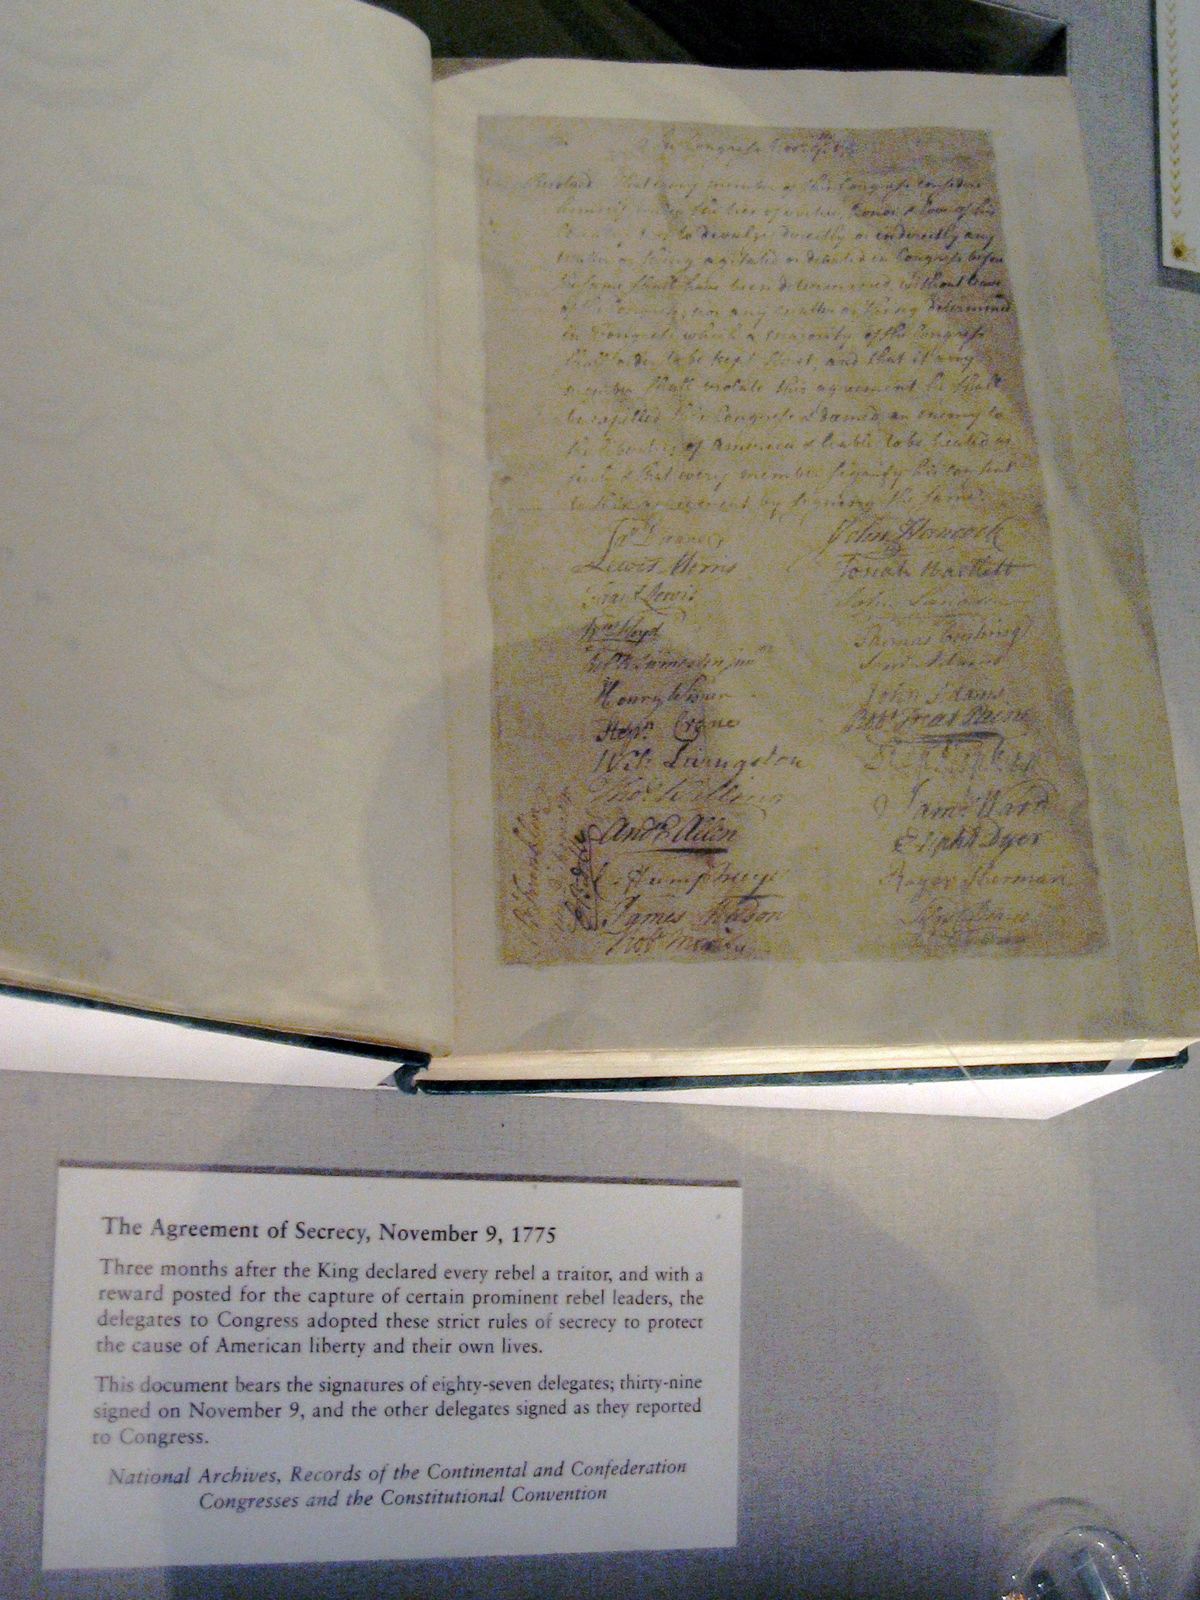 In Congress Nov. 9. 1775
Resolved That every member of this Congress consider
himself under the ties of virtue, honor & love of his
Country not to divulge directly or indirectly any
matter or thing agitated or debated in Congress before
the same shall have been determined, without leave
of the Congress; nor any matter or thing determined
in Congress which a majority of the Congress
shall order to be kept secret, and that if any
member shall violate this agreement he shall
be expelled this Congress & deemed an enemy to
the liberties of America & liable to be treated as
such, & that every member signify his consent
to this agreement by signing the same.
Jas Duane John Hancock
Lewis Morris Josiah Bartlett
Fras Lewis John Langdon
Wm Floyd Thomas Cushing
Robt R Livingston junr Saml Adams
Henry Wisner John Adams
Stepn Crane Robt Treat Paine
Wil: Livingston Step Hopkins
Thos Willing Sam: Ward
Andw Allen Elipht Dyer
C Humphreys Roger Sherman
James Wilson Silas Deane
Robt Morris
B Franklin
The Agreement of Secrecy, November 9, 1775
Three months after the King declared every rebel a traitor, and with a
reward posted for the capture of certain prominent rebel leaders, the
delegates to Congress adopted these strict rules of secrecy to protect
the cause of American liberty and their own lives.
This document bears the signatures of eighty-seven delegates; thirty-nine
signed on November 9, and the other delegates signed as they reported
to Congress.
National Archives, Records of the Continental and Confederation
Congresses and the Constitutional Convention